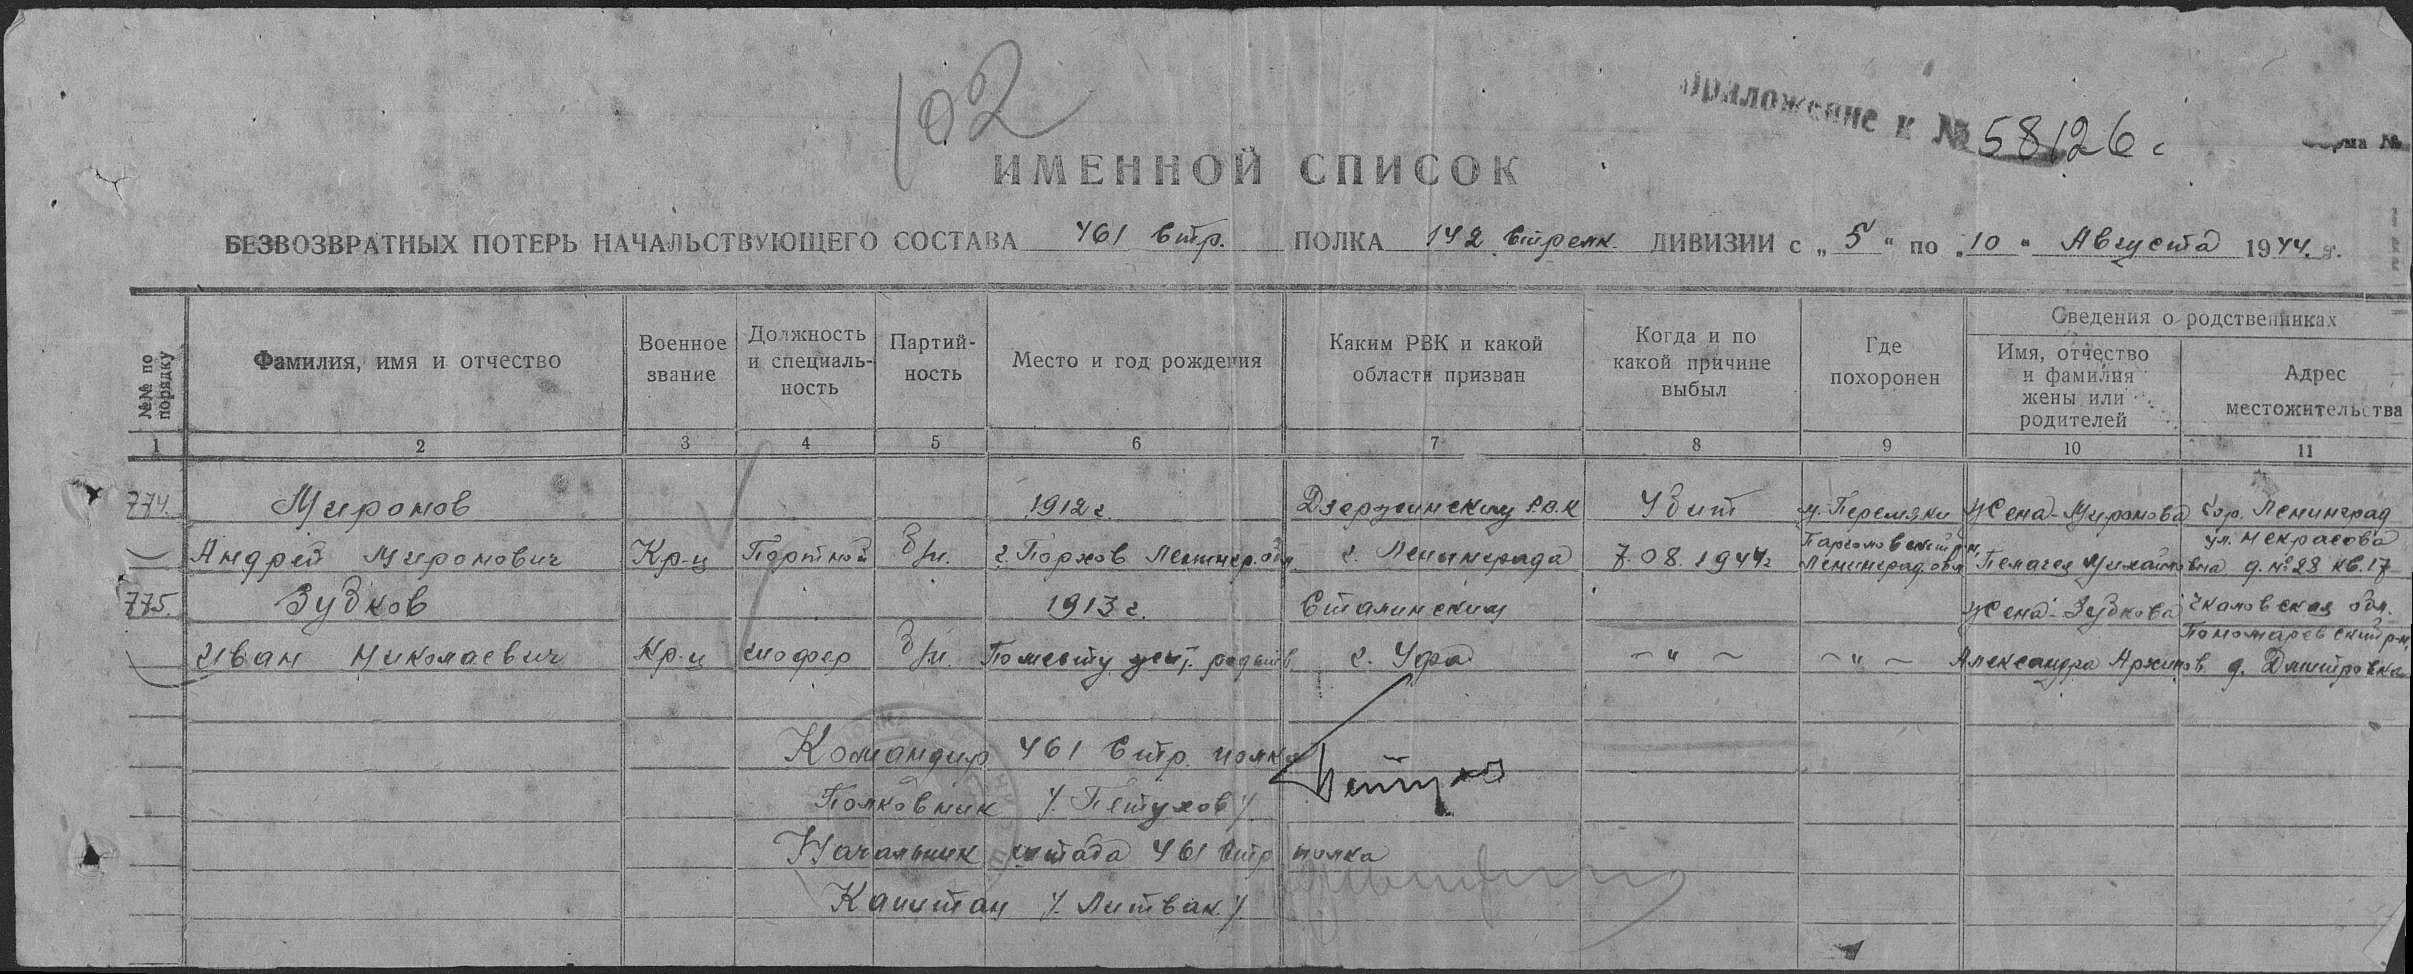 102
Приложение к № 58126с
Форма №
ИМЕННОЙ СПИСОК
БЕЗВОЗВРАТНЫХ ПОТЕРЬ НАЧАЛЬСТВУЮЩЕГО СОСТАВА 461 стр. ПОЛКА 142 стрелк. ДИВИЗИИ с „5“ по „10“ Августа 1944 г.
№№ по порядку
Фамилия, имя и отчество
Военное звание
Должность и специаль-ность
Партий-ность
Место и год рождения
Каким РВК и какой области призван
Когда и по какой причине выбыл
Где похоронен
Сведения о родственниках
Имя, отчество и фамилия жены или родителей
Адрес местожительства
1 2 3 4 5 6 7 8 9 10 11
774. Миронов 1912 г. Дзержинским РВК Убит Жена-Миронова гор. Ленинград
ул. Некрасова
Андрей Миронович Кр-ц Портной б/п. г. Порхов Ленингр. обл г. Ленинграда 7.08.1944г Ленинград. обл Пелагея д. № 28 кв. 17
775. Зубков 1913 г. Сталинским Жена-Зубкова Чкаловская обл.
Пономаревский р-н,
Иван Николаевич Кр-ц шофер б/п. По месту жит. г. Уфа — " — — " — Александра д. Дмитровка
Командир 461 стр. полка
Полковник /Петухов/
Начальник штаба 461 стр полка
Капитан /Литвак/